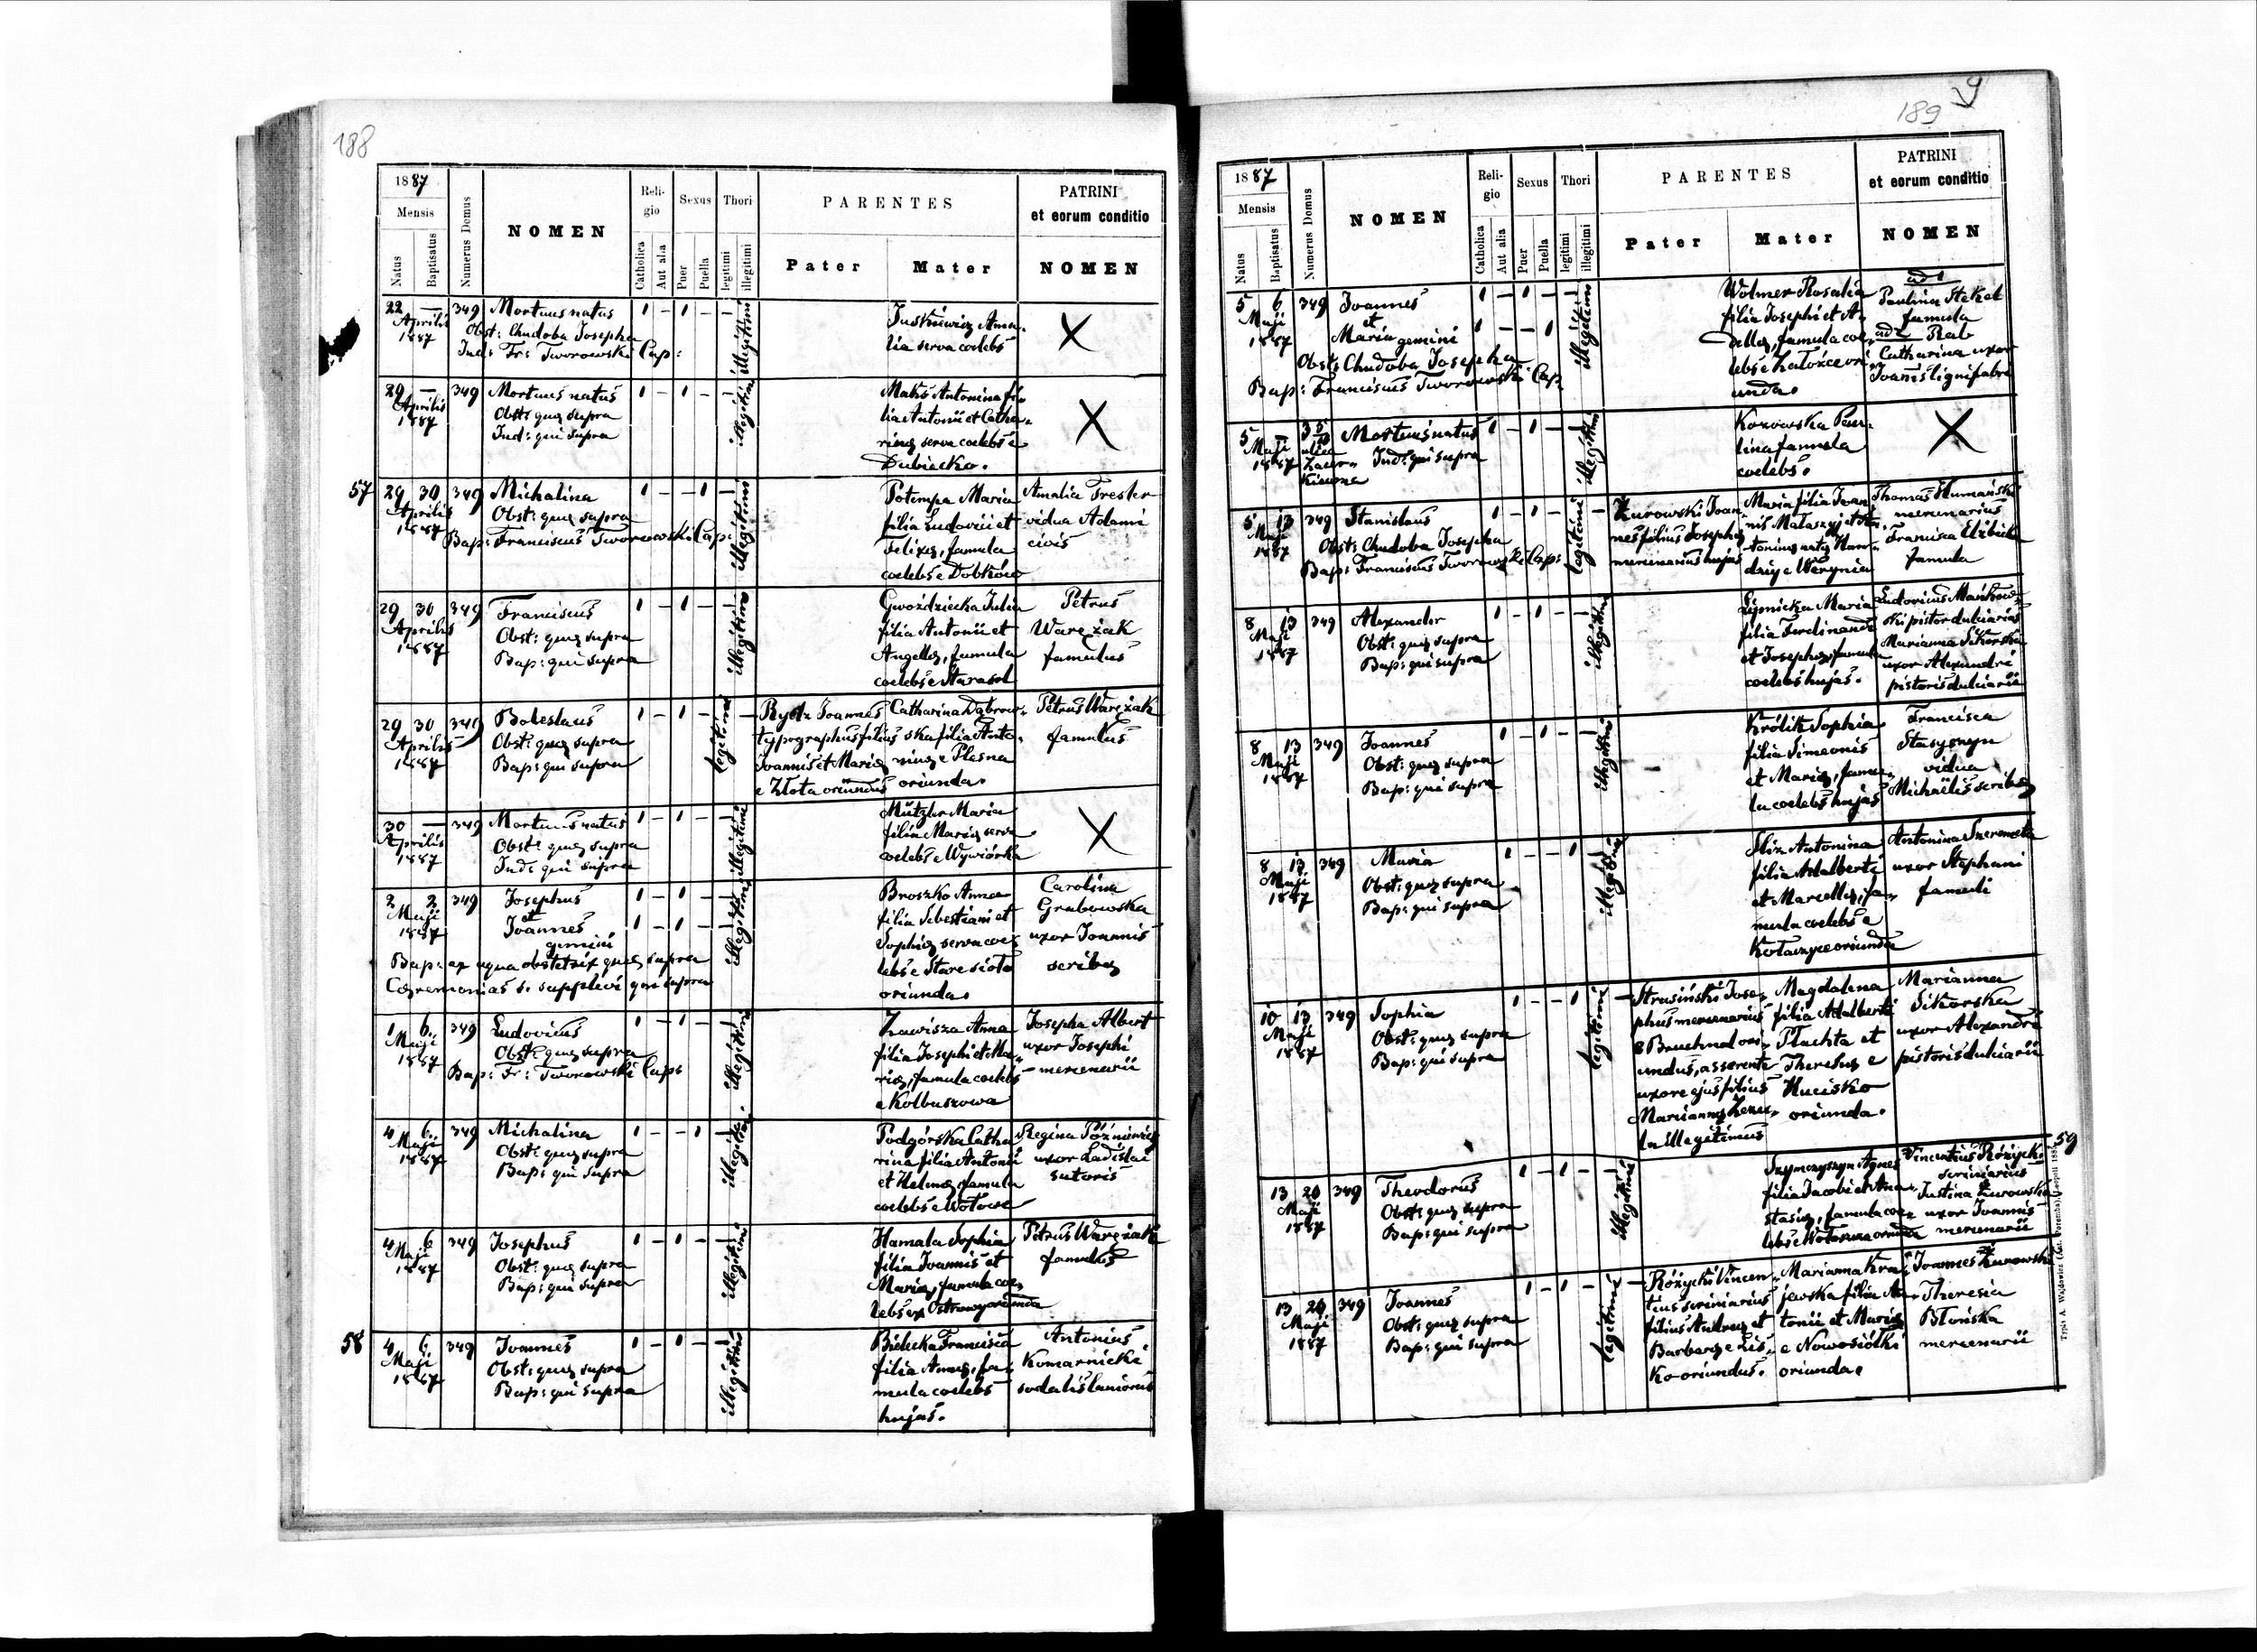 188
1887
Mensis
Natus
Baptisatus
Numerus Domus
NOMEN
Reli-
gio
Catholica
Aut alia
Sexus
Puer
Puella
Thori
legitimi
illegitimi
PARENTES
Pater
Mater
PATRINI
et eorum conditio
NOMEN
22 — 349 Mortuus natus 1 – 1 – –
Aprilis
1887
Obst: Chudoba Josepha
Ind: Fr: Tworowski Cap:
illegitimi
lia serva coelebs
X
29 — 349 Mortuus natus 1 – 1 – –
Aprilis
1887
Obst: quae supra
Ind: qui supra
illegitimi
Antonina fi-
lia Antonii et Catha-
rinae serva coelebs e
Dubiecko.
X
57
29 30 349 Michalina 1 – – 1 –
Aprilis
1887
Obst: quae supra
Bap: Franciscus Tworowski Cap:
illegitimi
Potempa Maria
filia Ludovici et
Felixae, famula
coelebs e Dobków
Amalia Trester
vidua Adami
civis
29 30 349 Franciscus 1 – 1 – –
Aprilis
1887
Obst: quae supra
Bap: qui supra
illegitimi
Gwoździecka Julia
filia Antonii et
Angellae, famula
coelebs e Starasol
Petrus
Warężak
famulus
29 30 349 Boleslaus 1 – 1 – –
Aprilis
1887
Obst: quae supra
Bap: qui supra
legitimi
Rydz Joannes
typographus filius
Joannis et Mariae
e Złota oriundus
Catharina Dąbrow-
ska filia Anto-
ninae e Plesna
oriunda.
Petrus Warężak
famulus
30 — 349 Mortuus natus 1 – 1 – –
Aprilis
1887
Obst: quae supra
Ind: qui supra
illegitimi
Mützler Maria
filia Mariae serva
coelebs e Wywiórka
X
2 2 349 Josephus 1 – 1 – –
Maji
1887
et
Joannes 1 – 1 –
gemini
Bap: ex aqua obstetrix quae supra
Coeremonias s. supplevi qui supra
illegitimi
Broszko Anna
filia Sebastiani et
Sophiae serva coe-
lebs e Stare sioło
oriunda.
Carolina
Grabowska
uxor Joannis
scribae
1 6 349 Ludovicus 1 – 1 – –
Maji
1887
Obst: quae supra
Bap: Fr: Tworowski Cap:
illegitimi
Zawisza Anna
filia Josephi et Ma-
riae, famula coelebs
e Kolbuszowa
Josepha Albert
uxor Josephi
mercenarii
4 6 349 Michalina 1 – – 1 –
Maji
1887
Obst: quae supra
Bap: qui supra
illegitimi
Podgórska Catha-
rina filia Antonii
et Helenae, famula
coelebs e Wołowe
Regina Późniewicz
uxor Ladislai
sutoris
4 6 349 Josephus 1 – 1 – –
Maji
1887
Obst: quae supra
Bap: qui supra
illegitimi
Hamala Sophia
filia Joannis et
Mariae, famula coe-
lebs ex Ostrowy oriunda
Petrus Warężak
famulus
58
4 6 349 Joannes 1 – 1 – –
Maji
1887
Obst: quae supra
Bap: qui supra
illegitimi
Bielecka Francisca
filia Annae, fa-
mula coelebs
hujas.
Antonius
Komarnicki
sodalis lanionus
189
1887
Mensis
Natus
Baptisatus
Numerus Domus
NOMEN
Reli-
gio
Catholica
Aut alia
Sexus
Puer
Puella
Thori
legitimi
illegitimi
PARENTES
Pater
Mater
PATRINI
et eorum conditio
NOMEN
5 6 349 Joannes 1 – 1 – –
Maji
1887
et
Maria gemini 1 – – 1
Obst: Chudoba Josepha
Bap: Franciscus Tworowski Cap.
illegitimi
Wolmer Rosalia
filia Josephi et A-
dellae, famula coe-
lebs e Załoźce ori-
unda.
ad 1
Paulina Stekel
famula
ad 2 Rab
Catharina uxor
Joannis lignifabri
5 — Mortuus natus 1 – 1 – –
Maji
1887
ulica
Ind: qui supra
illegitimi
Pau-
lina famula
coelebs.
X
5 13 349 Stanislaus 1 – 1 – –
Maji
1887
Obst: Chudoba Josepha
Bap: Franciscus Tworowski Cap:
legitimi
Żurowski Joan-
nes filius Josephae
mercenarius hujas
Maria filia Joan-
nis
e Werynia
Thomas Humański
mercenarius
Francisca Elżbieta
famula
8 13 349 Alexander 1 – 1 – –
Maji
1887
Obst: quae supra
Bap: qui supra
illegitimi
Lipnicka Maria
filia Ferdinandi
et Josephae, famula
coelebs hujas.
Ludovicus Mańkow-
ski pistor dulciarius
Marianna Sikorska
uxor Alexandri
pistoris dulciarii
8 13 349 Joannes 1 – 1 – –
Maji
1887
Obst: quae supra
Bap: qui supra
illegitimi
Królik Sophia
filia Simeonis
et Mariae, famu-
la coelebs hujas
Francisca
Stasyszyn
vidua
Michaelis scribae
8 13 349 Maria 1 – – 1 –
Maji
1887
Obst: quae supra
Bap: qui supra
illegitimi
Śliz Antonina
filia Adalberti
et Marcellae, fa-
mula coelebs e
Kołaczyce oriunda
Antonina Szeremeta
uxor Stephani
famuli
10 13 349 Sophia 1 – – 1 –
Maji
1887
Obst: quae supra
Bap: qui supra
legitimi
Strusiński Jose-
phus mercenarius
e Bruchnal ori-
undus, asserente
uxore ejus filius
Mariannae
illegitimus
Magdalena
filia Adalberti
Płachta et
Theresae e
Hucisko
oriunda.
Marianna
Sikorska
uxor Alexandri
pistoris dulciarii
59
13 20 349 Theodorus 1 – 1 – –
Maji
1887
Obst: quae supra
Bap: qui supra
illegitimi
Szymczyszyn Agnes
filia Jacobi et Ana-
stasiae, famula coe-
lebs e Wołoszcza oriunda
Vincentius Różycki
scriniarius
Justina Żurowska
uxor Joannis
mercenarii
13 20 349 Joannes 1 – 1 – –
Maji
1887
Obst: quae supra
Bap: qui supra
legitimi
Różycki Vincen-
tius scriniarius
filius Andreae et
Barbarae e Lis-
ko oriundus.
Marianna Kra-
jewska filia An-
tonii et Mariae
e Nowosiółki
oriunda.
Joannes Żurowski
Theresia
Błońska
mercenarii